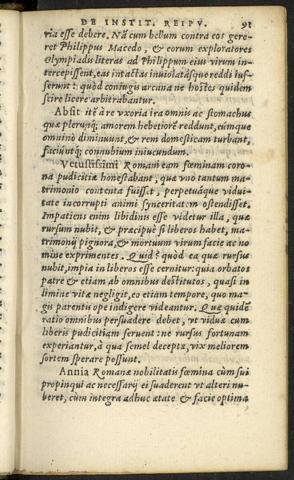 DE INSTIT. REIPV. 91
via esse debere. Nã cum bellum contra eos gere-
ret Philippus Macedo, & eorum exploratores
Olympiadis literas ad Philippum eius virum in-
tercepissent, eas intactas inuiolatásque reddi ius-
serunt: quòd coniugis arcana ne hostes quidem
scire licere arbitrabantur.
Absit itẽ à re vxoria ira omnis ac stomachus
quæ plerunq; amorem hebetiorẽ reddunt, eúmque
omnino diminuunt, & rem domesticam turbant,
faciúntq; connubium iniucundum.
Vetustissimi Romani eam fœminam coro-
na pudicitiæ honestabant, quæ vno tantum ma-
trimonio contenta fuisset, perpetuáque viduita-
te incorrupti animi synceritatem ostendisset.
Impatiens enim libidinis esse videtur illa, quæ
rursum nubit, & præcipuè si liberos habet, ma-
trimonij pignora, & mortuum virum facie ac no
mine exprimentes. Quid? quòd ea quæ rursus
nubit, impia in liberos esse cernitur: quia orbatos
patre & etiam ab omnibus destitutos, quasi in
limine vitæ negligit, eo etiam tempore, quo ma-
gis parentis ope indigere videantur. Quæ quidẽ
ratio omnibus persuadere debet, vt viduæ cum
liberis pudicitiam seruent: ne rursus fortunam
experiantur, à qua semel deceptæ, vix meliorem
sortem sperare possunt.
Annia Romanæ nobilitatis fœmina cùm sui
propinqui ac necessarij ei suaderent vt alteri nu-
beret, cùm integra adhuc ætate & facie optima